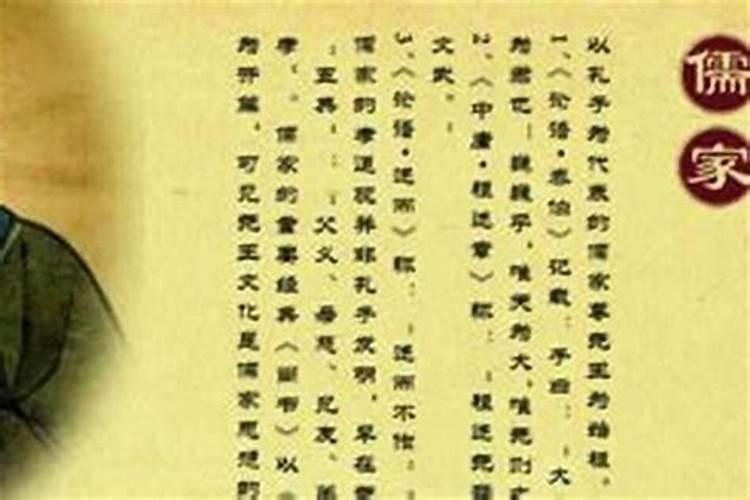 儒家
以孔子为代表的儒家尊尧王为始祖。
1、《论语·泰伯》记载：子曰：“大
为君也！巍巍乎，唯天为大，唯尧则之
2、《中庸·祖述章》称：“祖述尧舜
文武。”
3、《论语·述而》称：“述而不作
儒家的孝道观并非孔子发明，早在
“五典”：“父义、母慈、兄友、弟
孝”。儒家的重要经典《尚书》以
为开篇，可见尧王文化是儒家思想的